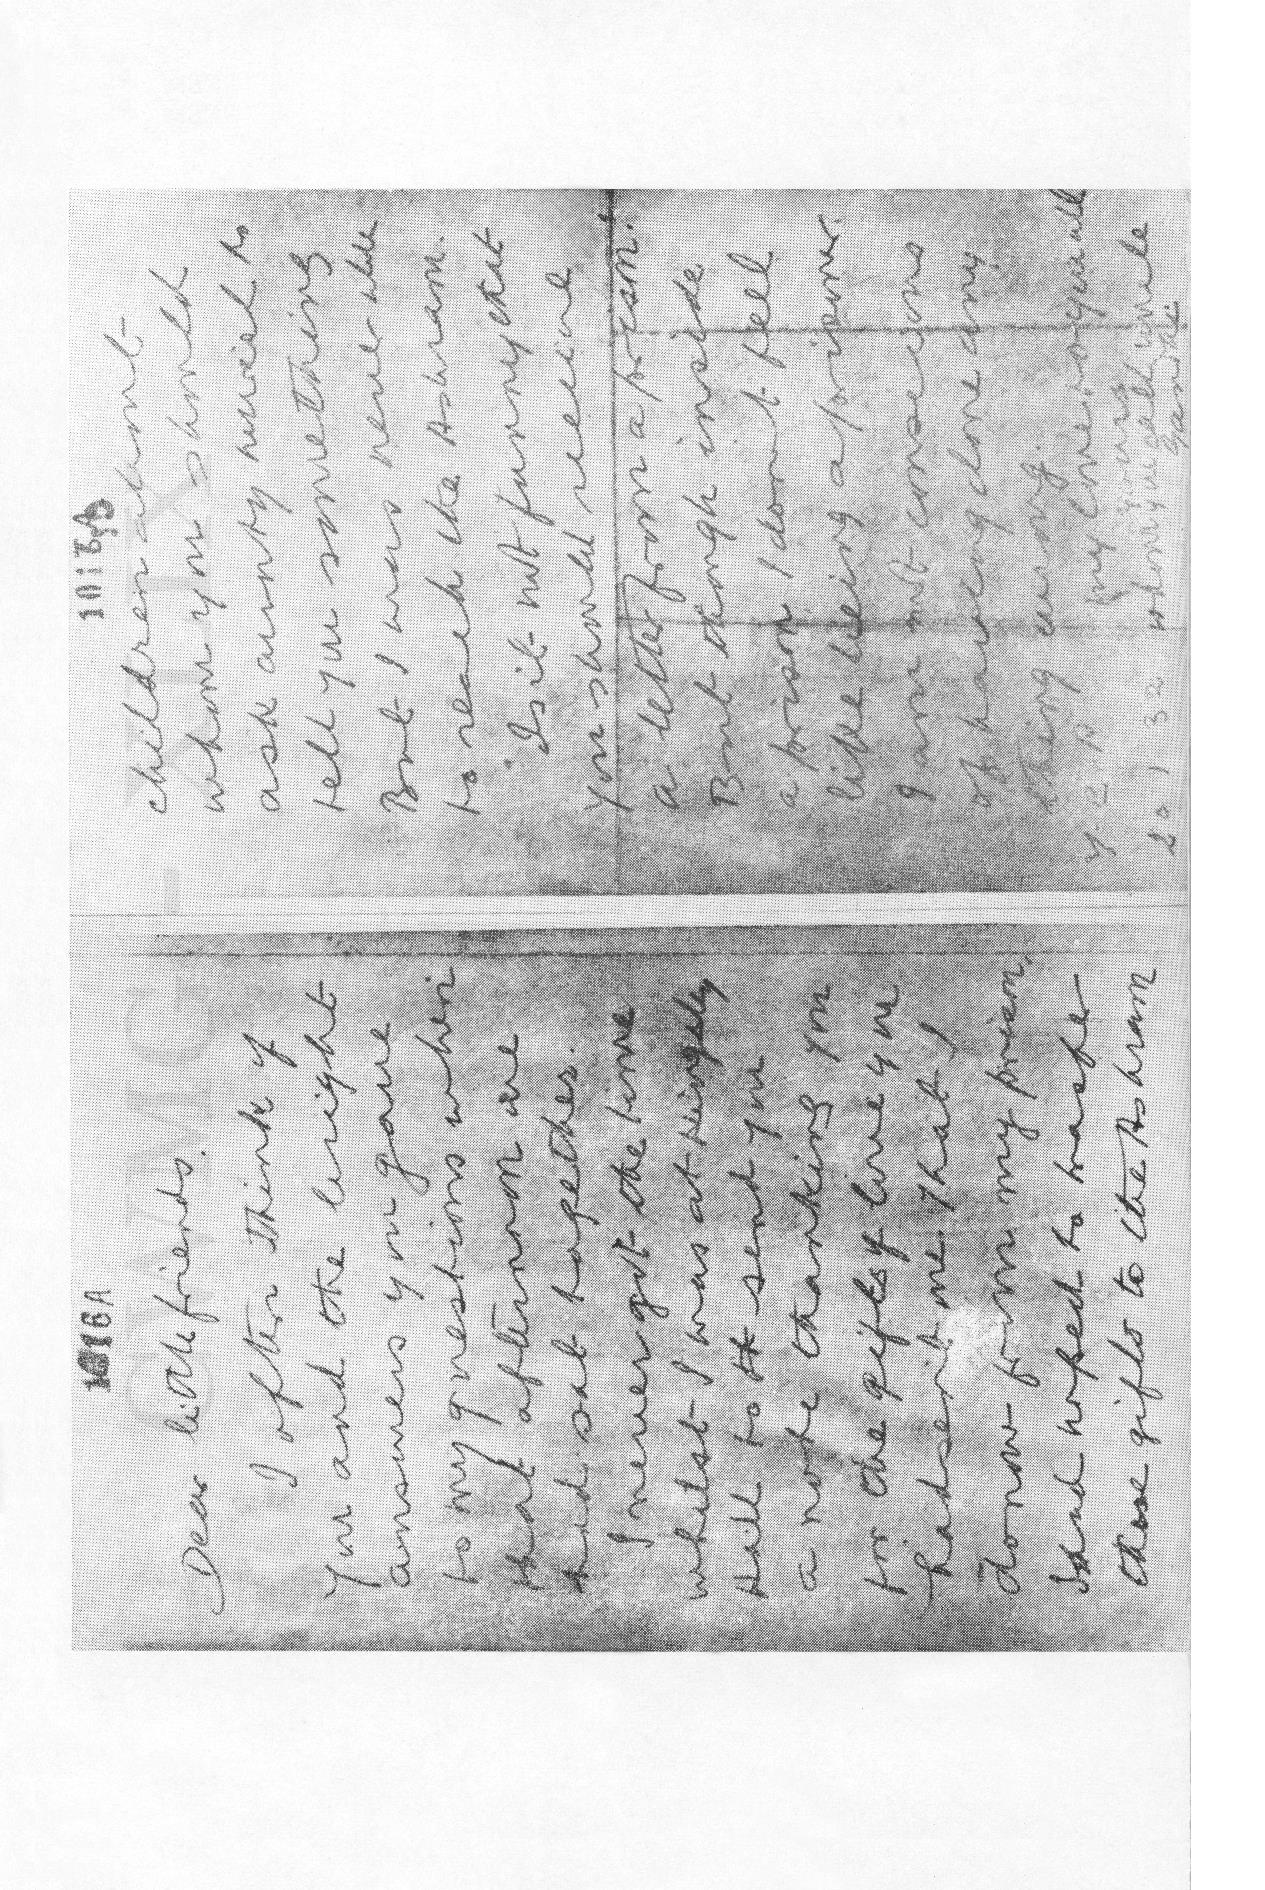 1018A
Dear little friends,
I often think of
you and the bright
answers you gave
to my questions when
that afternoon we
had sat together.
I never got the time
whilst I was at Kingsley
Hall to send you
a note thanking you
for the gifts of love you
had sent me. That I
do now from my prison.
I had hoped to transfer
those gifts to the Ashram
children about
whom you should
ask aunty Muriel to
tell you something
But I was never able
to reach the Ashram.
Is it not funny that
you should receive
a letter from a prison?
But though inside
a prison I don't feel
like being a prisoner.
I am not conscious
of having done any
thing wrong.
My love to you all
Yours
Y C P
20 1 32 whom you call uncle
Gandhi